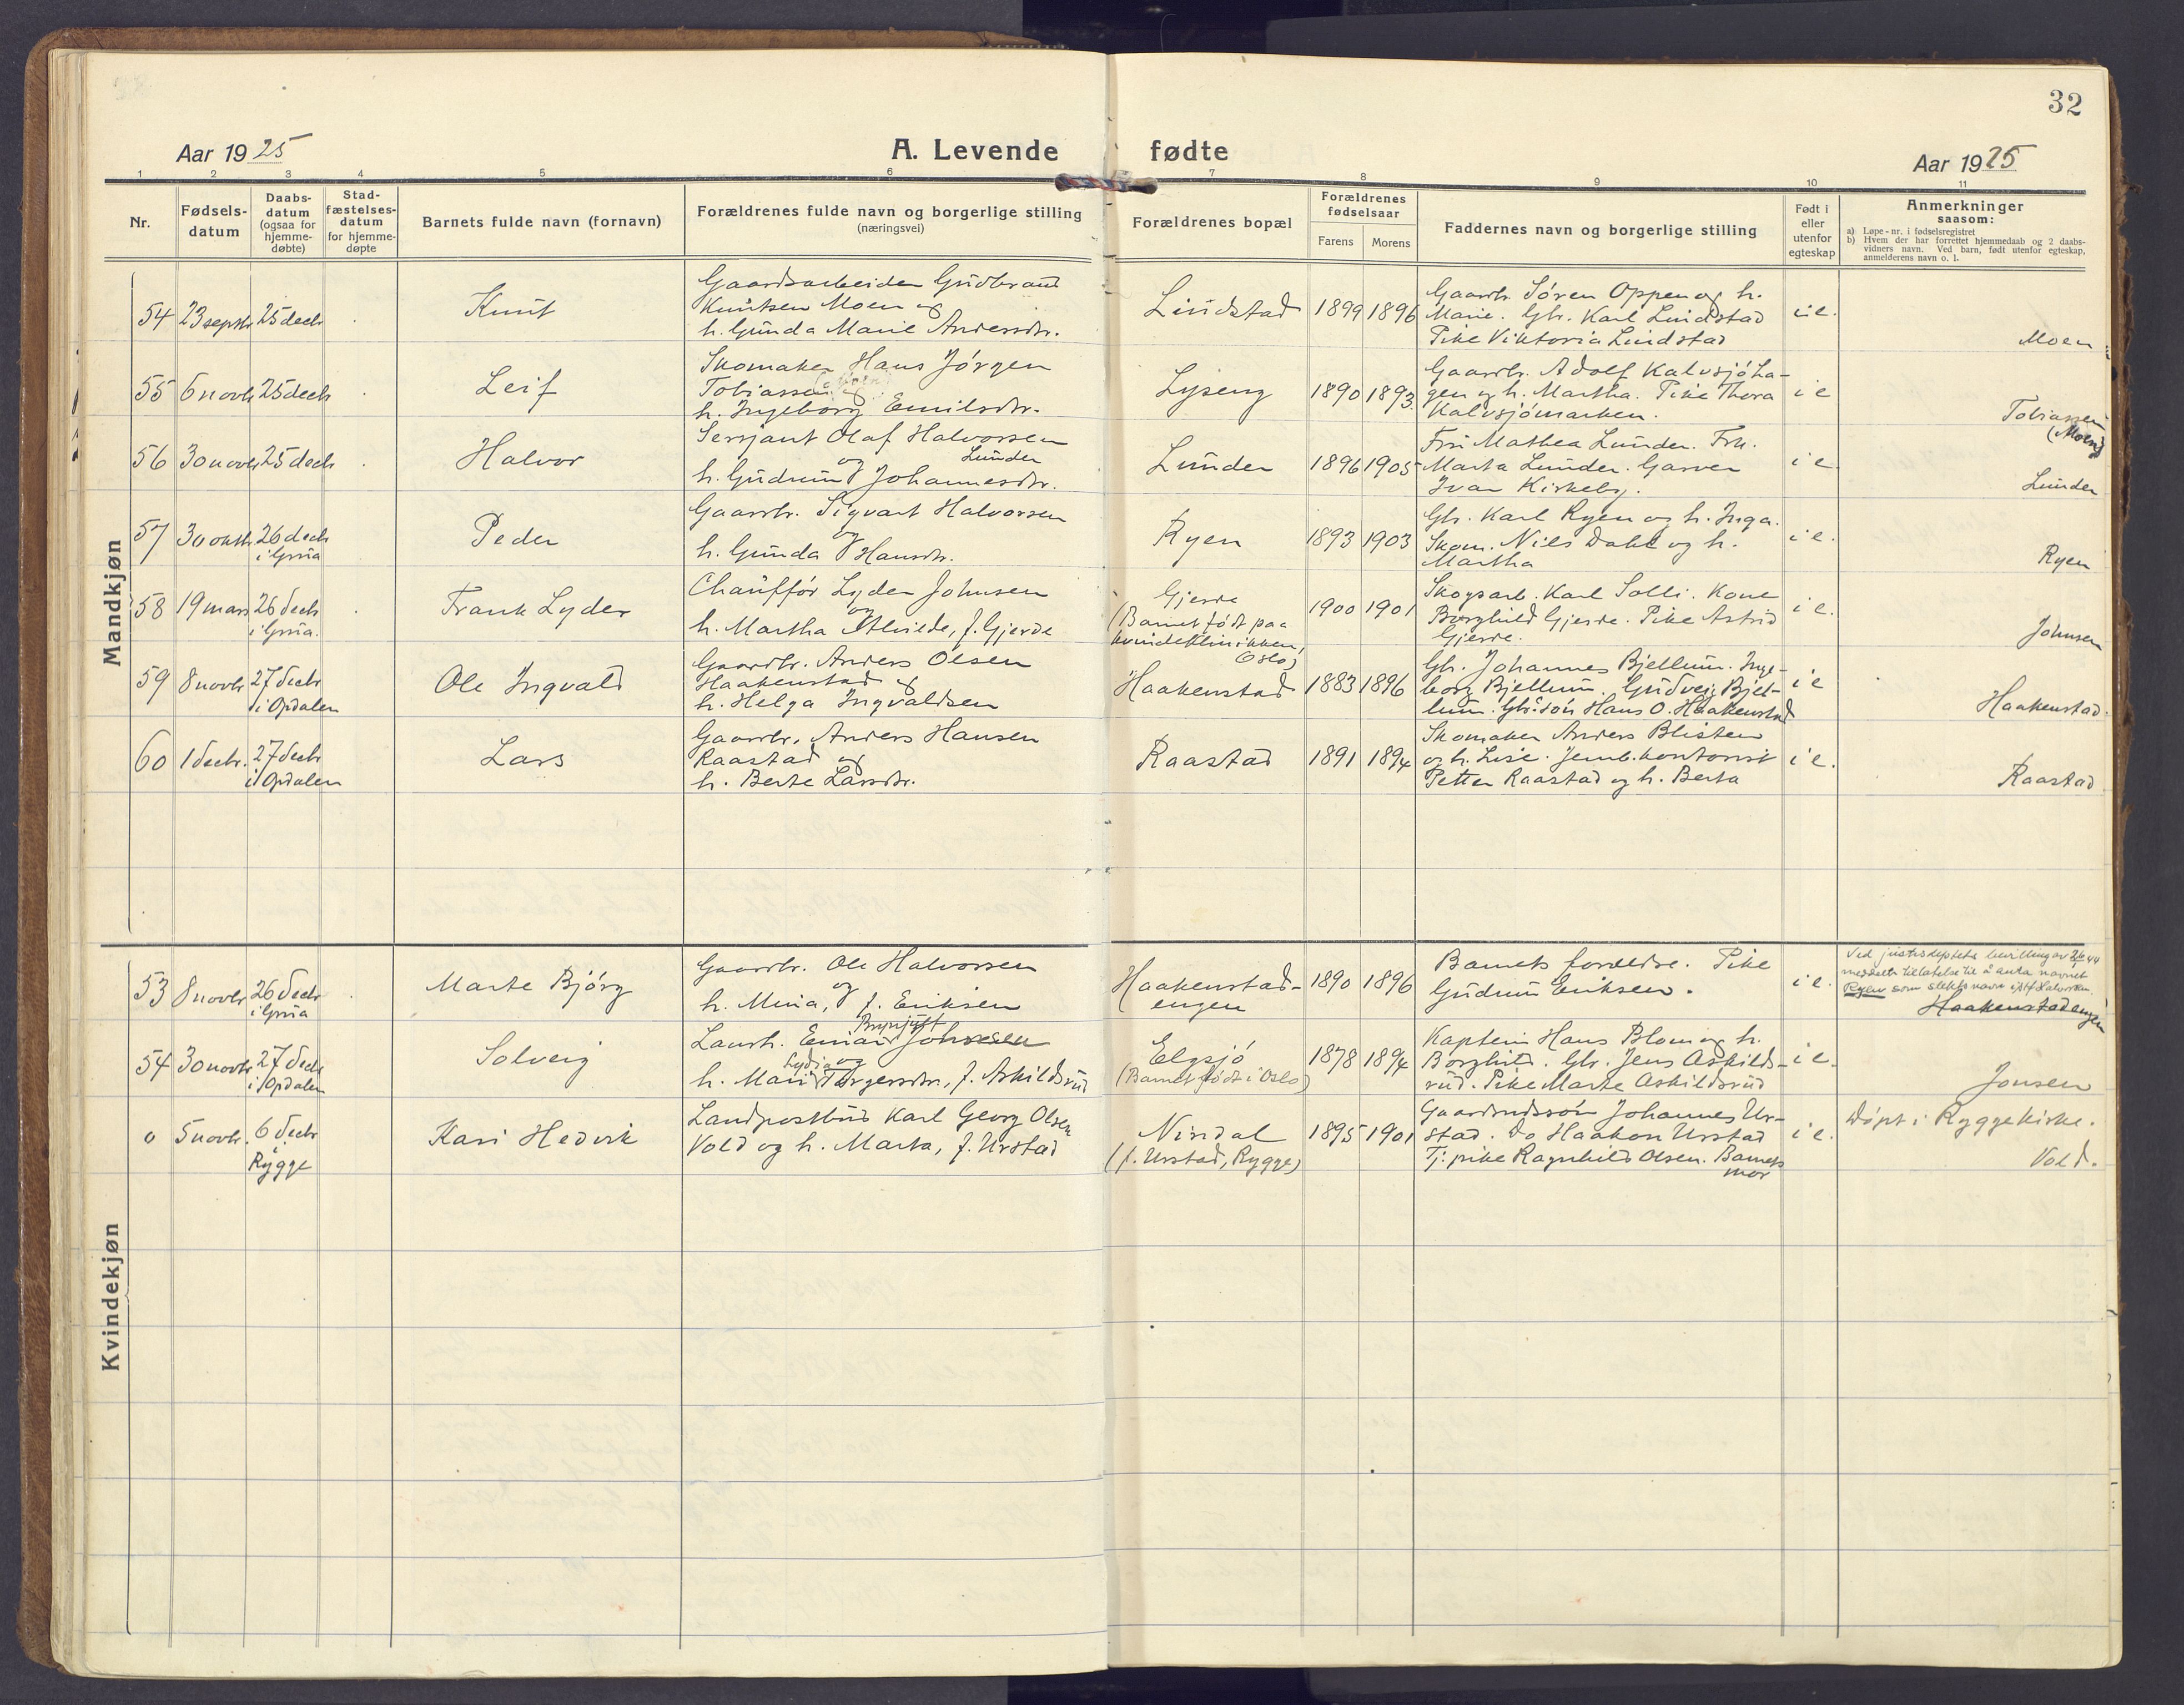 32
Aar 1925
A. Levende fødte
Aar 1925
1 2 3 4 5 6 7 8 9 10 11
Nr.
Fødsels-
datum
Daabs-
datum
(ogsaa for
hjemme-
døbte)
Stad-
fæstelses-
datum
for hjemme-
døpte
Barnets fulde navn (fornavn)
Forældrenes fulde navn og borgerlige stilling
(næringsvei)
Forældrenes bopæl
Forældrenes
fødselsaar
Farens Morens
Faddernes navn og borgerlige stilling
Født i
eller
utenfor
egteskap
Anmerkninger
saasom:
a) Løpe-nr. i fødselsregistret
b) Hvem der har forrettet hjemmedaab og 2 daabs-
vidners navn. Ved barn, født utenfor egteskap,
anmelderens navn o. l.
Mandkjøn
54 23 septbr 25 decbr
Knut
Gaardsarbeider Gudbrand
Knutsen Moen og
h. Gunda Marie Andersdtr.
Lindstad
1899 1896
Gaardbr. Søren Oppen og h.
Marie. Gbr. Karl Lindstad
Pike Viktoria Lindstad
i e.
Moen
55 6 novbr 25 decbr
Leif
Skomaker Hans Jørgen
Tobiassen (Moen) og
h. Ingeborg Emilsdtr.
Lyseng
1890 1893.
Gaardbr. Adolf Kalvsjøha-
gen og h. Martha. Pike Thora
Kalvsjømarken.
i e
Tobiassen
(Moen)
56 30 novbr 25 decbr
Halvor
Sersjant Olaf Halvorsen
og Lunder
h. Gudrun Johannesdtr.
Lunder
1896 1905
Fru Mathea Lunder. Frk.
Marta Lunder. Garver
Ivar Kirkeby.
i e
Lunder
57 30 oktbr 26 decbr
i Grua
Peder
Gaardbr. Sigvart Halvorsen
og
h. Gunda Hansdtr.
Ryen
1893 1903
Gbr. Karl Ryen og h. Inga.
Skom. Nils Dahl og h.
Martha
i e.
Ryen
58 19 mars 26 decbr
i Grua.
Frank Lyder
Chauffør Lyder Johnsen
og
h. Martha Alvilde, f. Gjerde
Gjerde
(Barnet født paa
kvindeklinikken,
Oslo)
1900 1901
Skogsarb. Karl Solli. Kone
Borghild Gjerde. Pike Astrid
Gjerde.
i e.
Johnsen
59 8 novbr 27 decbr
i Opdalen
Ole Ingvald
Gaardbr. Anders Olsen
Haakenstad og
h. Helga Ingvaldsen
Haakenstad
1883 1896
Gbr. Johannes Bjellum. Inge-
borg Bjellum. Gudveig Bjel-
lum. Gbr. søn Hans O. Haakenstad
i e
Haakenstad.
60 1 decbr. 27 decbr
i Opdalen
Lars
Gaardbr. Anders Hansen
Raastad og
h. Berte Larsdtr.
Raastad
1891 1894
Skomaker Anders Blisten
og h. Lise. Jernb.kontorist
Petter Raastad og h. Berta
i e.
Raastad
Kvindekjøn
53 8 novbr 26 decbr
i Grua
Marte Bjørg
Gaardbr. Ole Halvorsen
og
h. Mina, f. Eriksen
Haakenstad-
engen
1890 1896
Barnets forældre. Pike
Gudrun Eriksen.
i e.
Ved justisdeptets bevilling av 2/6 44
meddelt tillatelse til å anta navnet
Ryen som slektsnavn istf Halvorsen.
Haakenstadengen
54 30 novbr 27 decbr
i Opdalen
Solveig
Brynjulf
Landh. Einar Johnsen
Lydia og
h. Mari Torgersdtr., f. Askildsrud
Elgsjø
(Barnet født i Oslo)
1878 1894
Kaptein Hans Blom og h.
Borghild. Gbr. Jens Askilds-
rud. Pike Marte Askildsrud
i e.
Jonsen
0 5 novbr. 6 decbr
Rygge
Kari Hedvik
Landpostbud Karl Georg Olsen
Vold og h. Marta, f. Urstad
Nindal
(f. Urstad, Rygge)
1895 1901
Gaardmdssøn Johannes Ur-
stad. Do Haakon Urstad
Tj: pike Ragnhild Olsen. Barnets
mor
i e.
Døpt i Rygge kirke.
Vold.